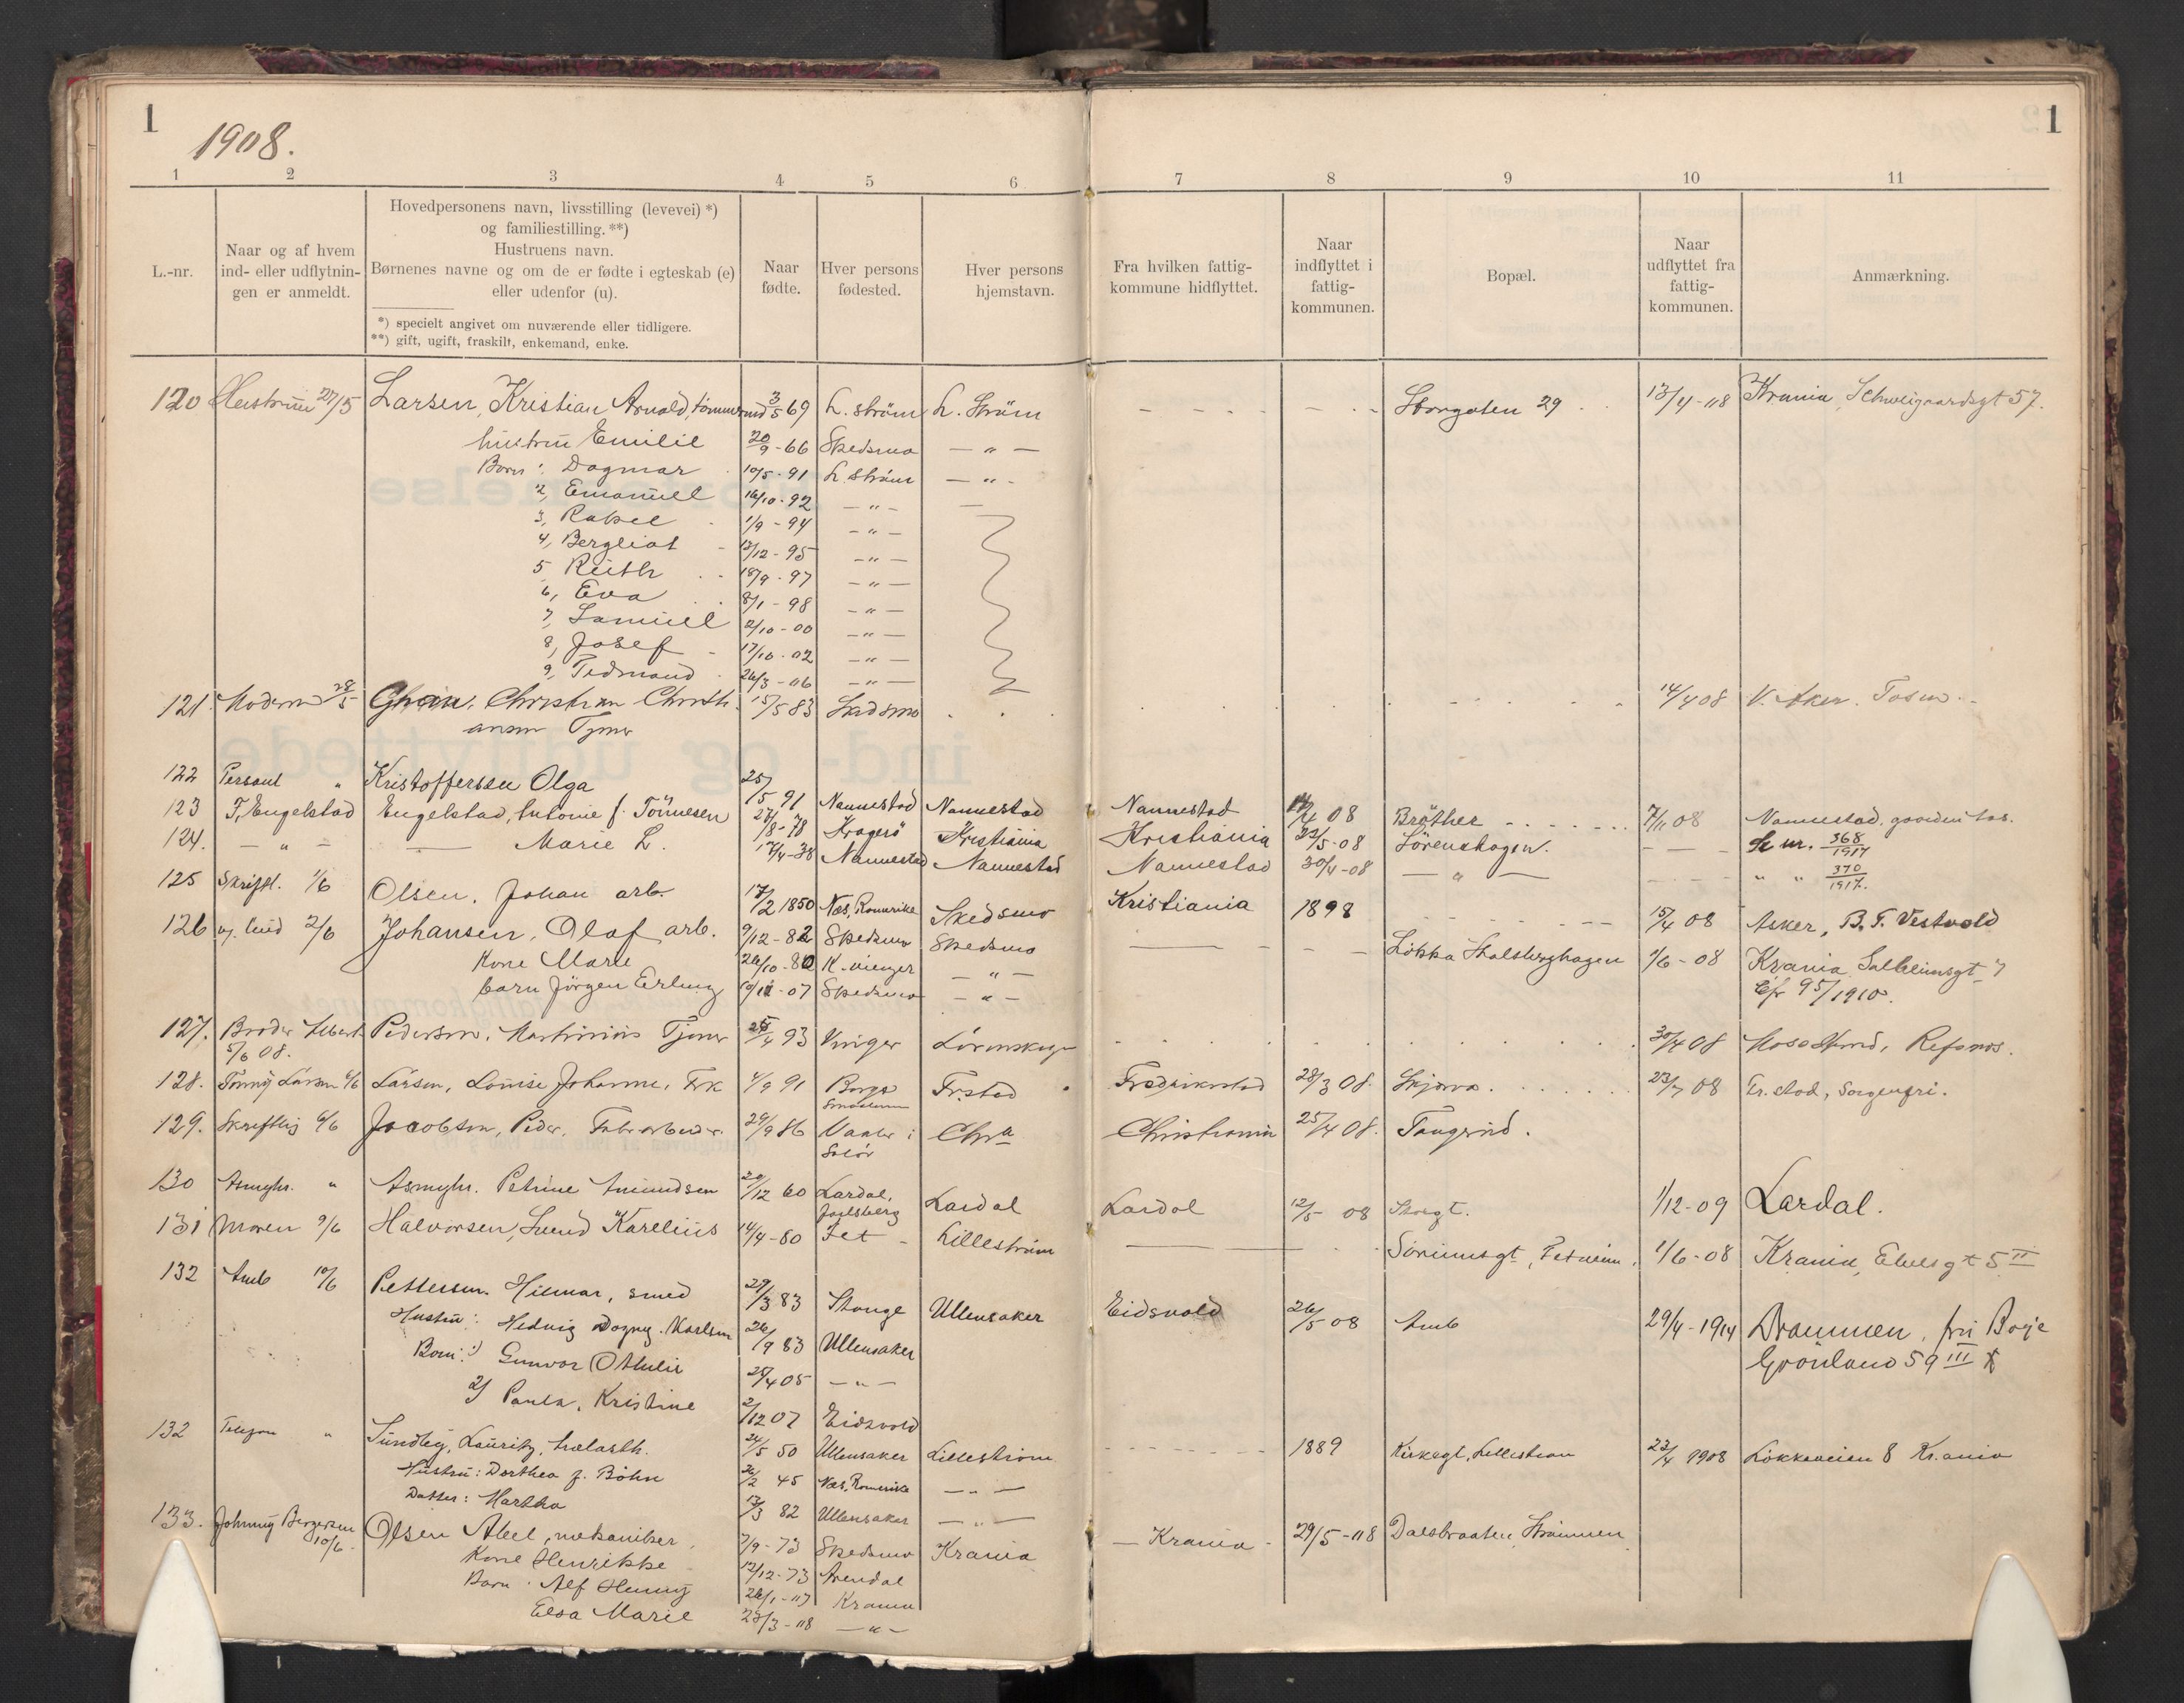 1
1
1908.
1 2 3 4 5 6 7 8 9 10 11
L.-nr.
Naar og af hvem
ind- eller udflytnin-
gen er anmeldt.
Hovedpersonens navn, livsstilling (levevei) *)
og familiestilling. **)
Hustruens navn.
Børnenes navne og om de er fødte i egteskab (e)
eller udenfor (u).
*) specielt angivet om nuværende eller tidligere.
**) gift, ugift, fraskilt, enkemand, enke.
Naar
fødte.
Hver persons
fødested.
Hver persons
hjemstavn.
Fra hvilken fattig-
kommune hidflyttet.
Naar
indflyttet i
fattig-
kommunen.
Bopæl.
Naar
udflyttet fra
fattig-
kommunen.
Anmærkning.
120 Hustruen 27/5 Larsen, Kristian Arnold, tømmermd 3/5 69 L. strøm L. Strøm - - - - - - - Storgaten 29 13/4-08 Krania, Schweigaardsgt 57.
hustru Emilie 20/9-66 Skedsmo — " —
Børn: Dagmar 10/5-91 L. strøm — " -
2, Emanuel 16/10-92 — " —
3, Rakel 1/9-94 — " —
4, Bergliot 12/12-95 — " —
5 Ruth 18/9-97 — " —
6, Eva 8/1-98 — " —
7, Samuel 2/10-00 — " —
8, Josef 17/10-02 — " —
9, Tedmand 26/3-06 — " —
121. Moderen 28/5 Christian Christi 15/5 83 Skedsmo 14/4 08 V. Aker.
ansen Tjener
122 Personl " Kristoffersen Olga 25/5 91 Nannestad Nannestad Nannestad 08 Bråther 7/11 08 Nannestad,
123 T, Engelstad Engelstad, Antonie f. Tönnesen 27/8-78 Kragerö Kristiania Kristiania 22/5-08 Sörenshagen. nr. 368/1917
124. — " — — Marie L. 17/4-38 Nannestad Nannestad Nannestad 30/4-08 — " — " " 370/1917.
125 Skriftl. 1/6 Olsen, Johan arb. 17/2 1850 Næs, Romerike Skedsmo Kristiania 1898 15/4 08 Asker, B. F. Vestvold
126 2/6 Johansen, Olaf arb. 9/12-82 Skedsmo Skedsmo Løkka Stalsberghagen 1/6-08 Krania
Kone Marie 26/10-80 K.vinger — " — Cfr 95/1910.
barn Jörgen Erling -07 Skedsmo — " —
127. Broder Albert Pedersen, Martinius Tjener 93 Vinger Lörenskogen 30/4 08
5/6 08.
128. Larsen 6/6 Larsen, Louise Johanne, Frk 4/9 91 Borge Fr.stad Fredrikstad 28/3 08. Skjærva 23/7 08 Fr.stad, Sorgenfri.
Smaalenene
129. Skriftlig 6/6 Jacobsen, Peder, Fabrarbeider 29/9 86 Vaaler i Chra Christiania 25/4 08. Tangerud.
Solör
130 Asmyhr. " Asmyhr. Petrine Amundsen 20/12 60 Lardal, Lardal Lardal 12/5 08 Storgt. 1/12-09 Lardal.
Jarlsberg
131 Moren 9/6 Halvorsen, Svend Karelius 14/4-80 Fet - Lilleström Sørumsgt, Fetheim. 1/6-08 Krania, 5 II
132 Amb 10/6 Pettersen. Hilmar, smed 29/3 83 Stange Ullensaker Eidsvold 26/5 08 Amb 29/4-1914 Drammen, fru Borje
Hustru: Hedvig Dagny. Karlsen 26/9 83 Ullensaker Grönland 59 III
Børn: 1) Gunvor Othilie 25/4 05 — " —
2) Paula, Kristine 2/12 07 Eidsvold
132 Telefon " Sundby, Lauritz, trælasth. 24/5 50 Ullensaker Lilleström - - - - - - 1889 Kirkegt, Lilleström 23/4 1908 Lökkeveien 8 Kr.ania
Hustru: Dorthea f. Böhn 26/2 45 Næs, Romerike — " —
Datter: Martha 13/3 82 Ullensaker — " —
133. Johnny Bergersen Olsen Abel, mekaniker, 7/9-73 Skedsmo Krania — Krania - 29/5-08 Dalsbraaten, Strømmen
10/6 - Kone Henrikke 12/12-73 Arendal
Børn: Alf Henny 26/1-07 Krania
Elsa Marie 28/3-08 — " —